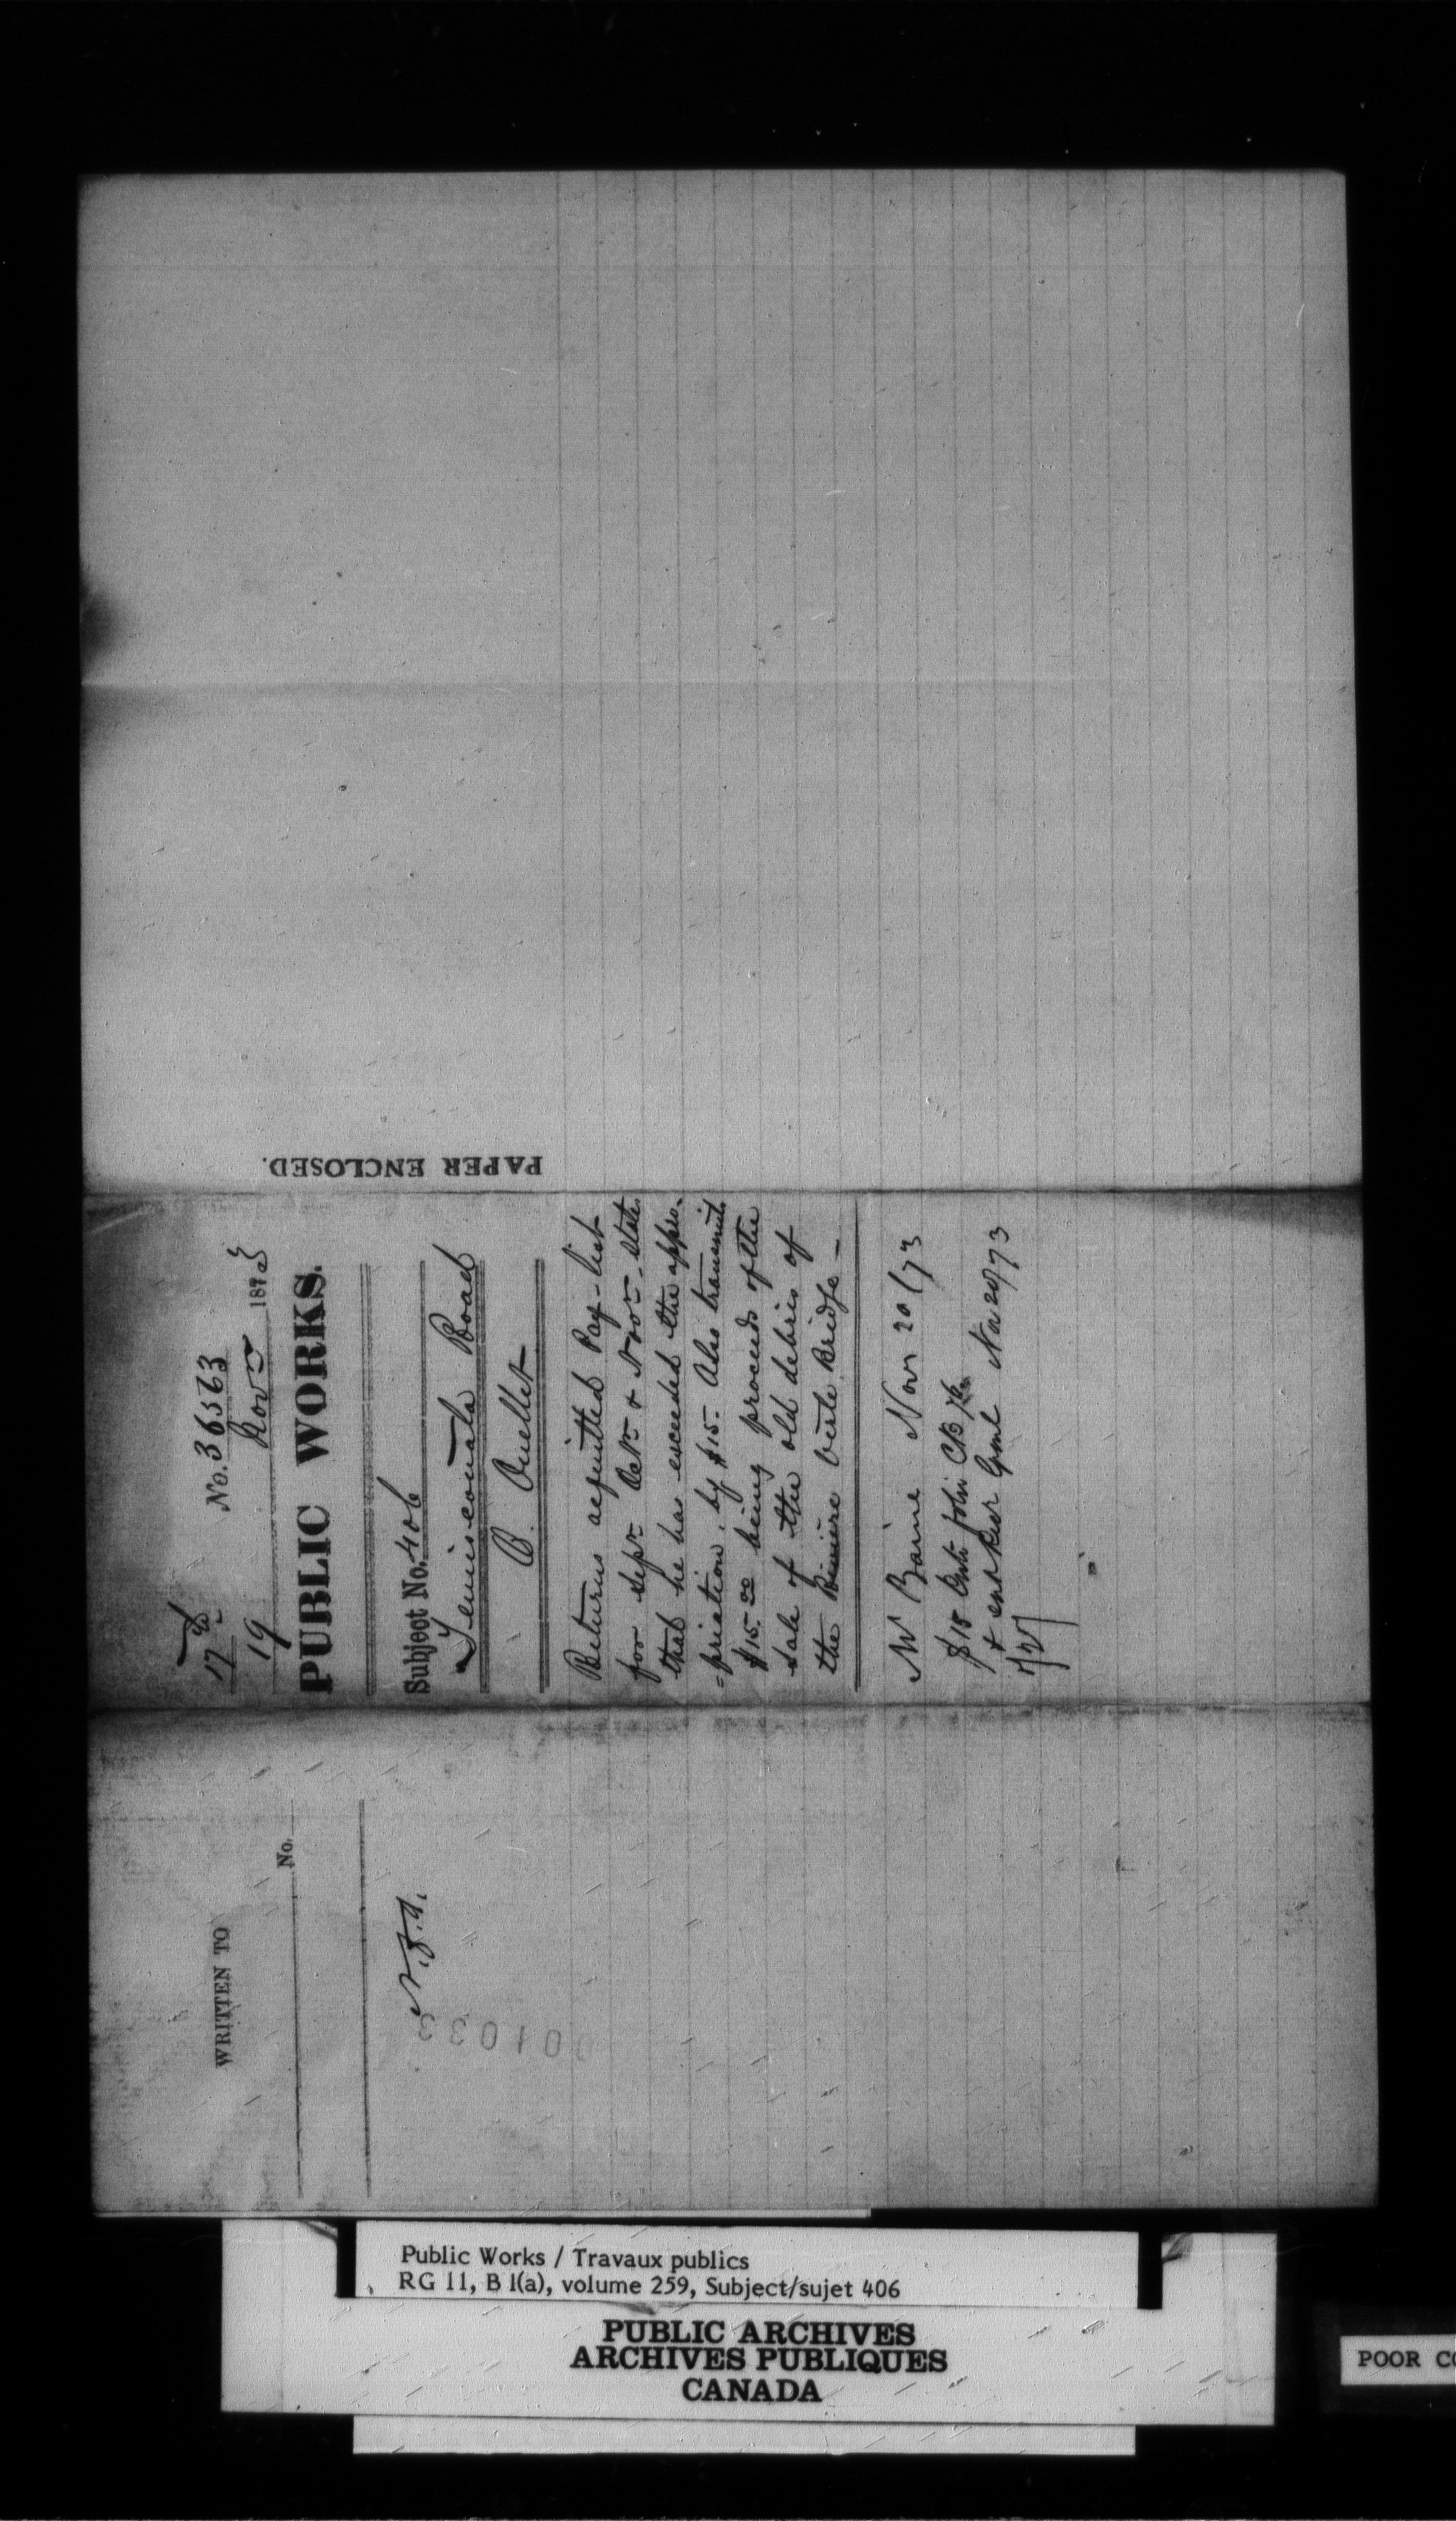 No. 36563
17th
19 Novr 1873
PUBLIC WORKS.
Subject No. 406
Temiscouata Road
B. Ouellet
Returns acquitted Pay-list
for Sepr. Octr. & Novr. States
that he has exceeded the appro-
=priation by $15. Also transmits
$15.00 being proceeds of the
sale of the old debris of
the Rivière Verte Bridge –
Mr Baine Novr 20/73
$15
Nov 20/73
PAPER ENCLOSED.
WRITTEN TO
No.
N.F.A.
001033
Public Works / Travaux publics
RG 11, B 1(a), volume 259, Subject/sujet 406
PUBLIC ARCHIVES
ARCHIVES PUBLIQUES
CANADA
POOR CO